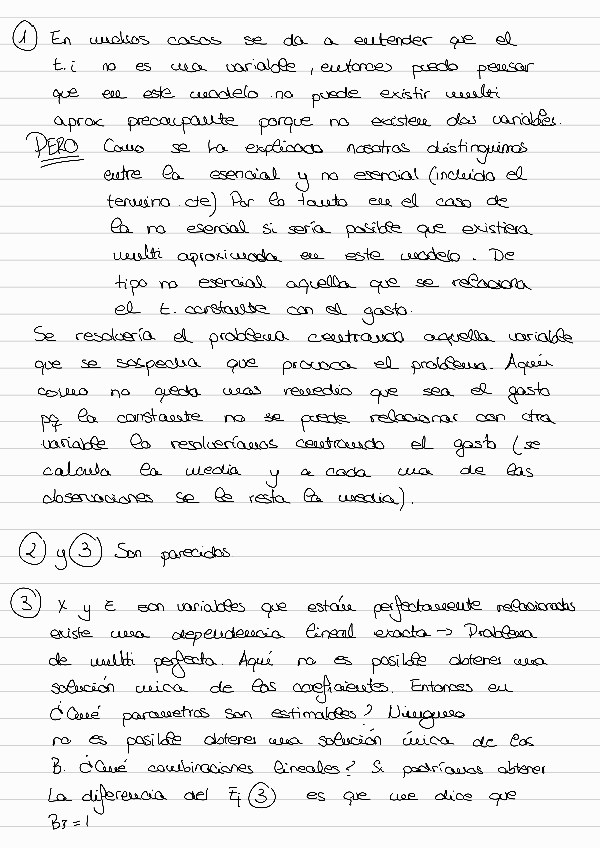 ① En muchos casos se da a entender que el
t.i no es una variable, entonces puedo pensar
que en este modelo no puede existir multi
aprox preocupante porque no existen dos variables.
PERO Como se ha explicado nosotros distinguimos
entre la esencial y no esencial (incluido el
termino cte) Por lo tanto en el caso de
la no esencial si sería posible que existiera
multi aproximada en este modelo. De
tipo no esencial aquella que se relaciona
el t. constante con el gasto.
Se resolvería el problema centrando aquella variable
que se sospecha que provoca el problema. Aquí
como no queda mas remedio que sea el gasto
pq la constante no se puede relacionar con otra
variable lo resolveríamos centrando el gasto (se
calcula la media y a cada una de las
observaciones se le resta la media).
② y ③ Son parecidos
③ X y Z son variables que están perfectamente relacionadas
existe una dependencia lineal exacta → Problema
de multi perfecta. Aquí no es posible obtener una
solución unica de los coeficientes. Entonces en
¿Qué parametros son estimables? Ninguno
no es posible obtener una solución única de los
B. ¿Qué combinaciones lineales? Si podríamos obtener
La diferencia del Ej ③ es que me dice que
B3 = 1